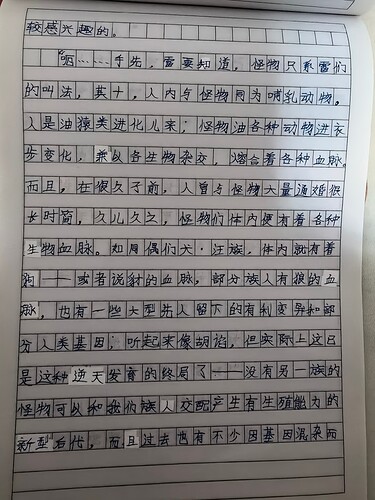 较感兴趣的。
“呃……手先，需要知道，怪物只系雷们
的叫法，其十，人内与怪物同为哺乳动物，
人是油猿类进化儿来；怪物油各种动物进衣
步变化，兼以各生物杂交，熔合着各种血脉。
而且，在很久于前，人曾与怪物大量通婚很
长时简，久儿久之，怪物们体内便有着各种
生物血脉。如同偶们犬·汪族，体内就有着
狗——或者说豺的血脉，部分族人有狼的血
脉，也有一些大型先人留下的有利变异和部
分人类基因；听起来像胡谄，但实际上这已
是这种逆天发育的终局了——没有另一族的
怪物可以和我们族人交配产生有生殖能力的
新型后代，而且过去也有不少因基因混杂而